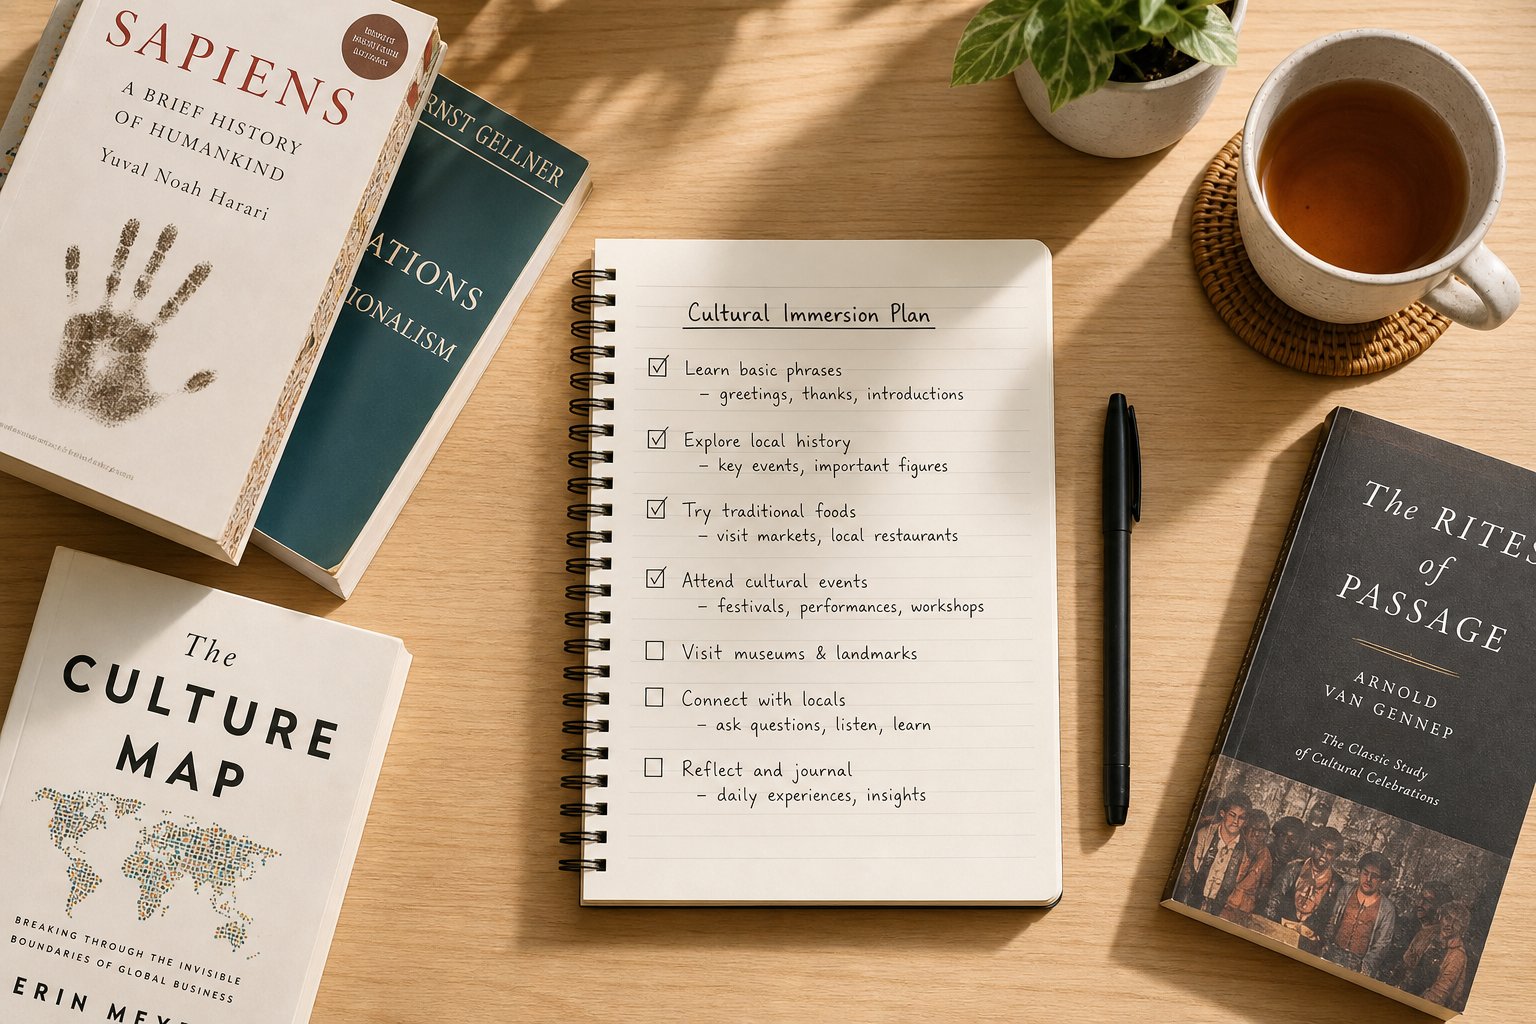 SAPIENS
A BRIEF HISTORY
OF HUMANKIND
Yuval Noah Harari
RNST GELLNER
ATIONS
IONALISM
The
CULTURE
MAP
BREAKING THROUGH THE INVISIBLE
BOUNDARIES OF GLOBAL BUSINESS
ERIN MEY
Cultural Immersion Plan
☑ Learn basic phrases
– greetings, thanks, introductions
☑ Explore local history
– key events, important figures
☑ Try traditional foods
– visit markets, local restaurants
☑ Attend cultural events
– festivals, performances, workshops
☐ Visit museums & landmarks
☐ Connect with locals
– ask questions, listen, learn
☐ Reflect and journal
– daily experiences, insights
The RITES
of
PASSAGE
ARNOLD
VAN GENNEP
The Classic Study
of Cultural Celebrations